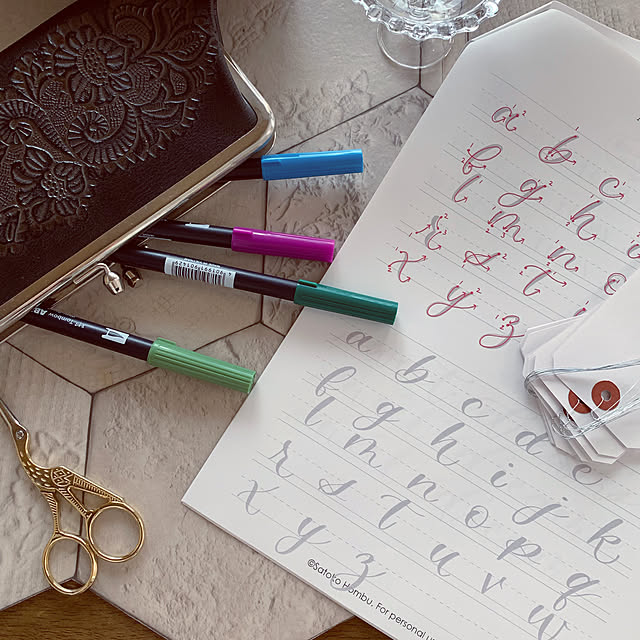 a b c
f g h i
l m n o
r s t u
x y z
a b c d e
f g h i j k
l m n o p q
r s t u v w
x y z
©Satoko Hombu. For personal
Tombow AB